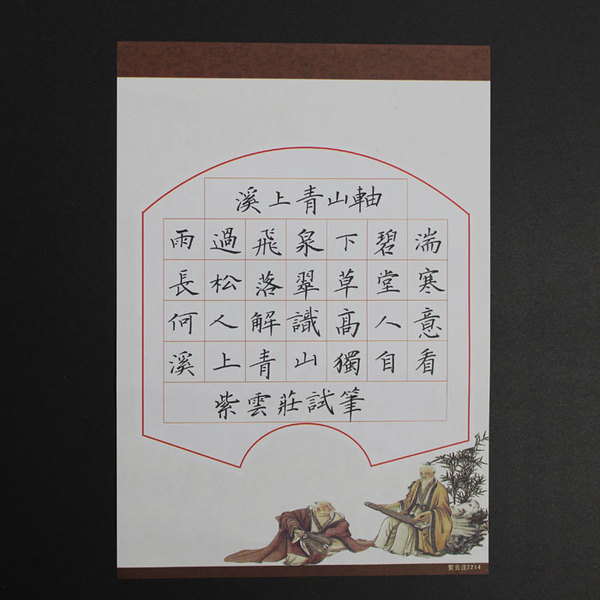 溪上青山軸
雨過飛泉下碧湍
長松落翠草堂寒
何人解識高人意
溪上青山獨自看
紫雲莊試筆
紫云庄2214